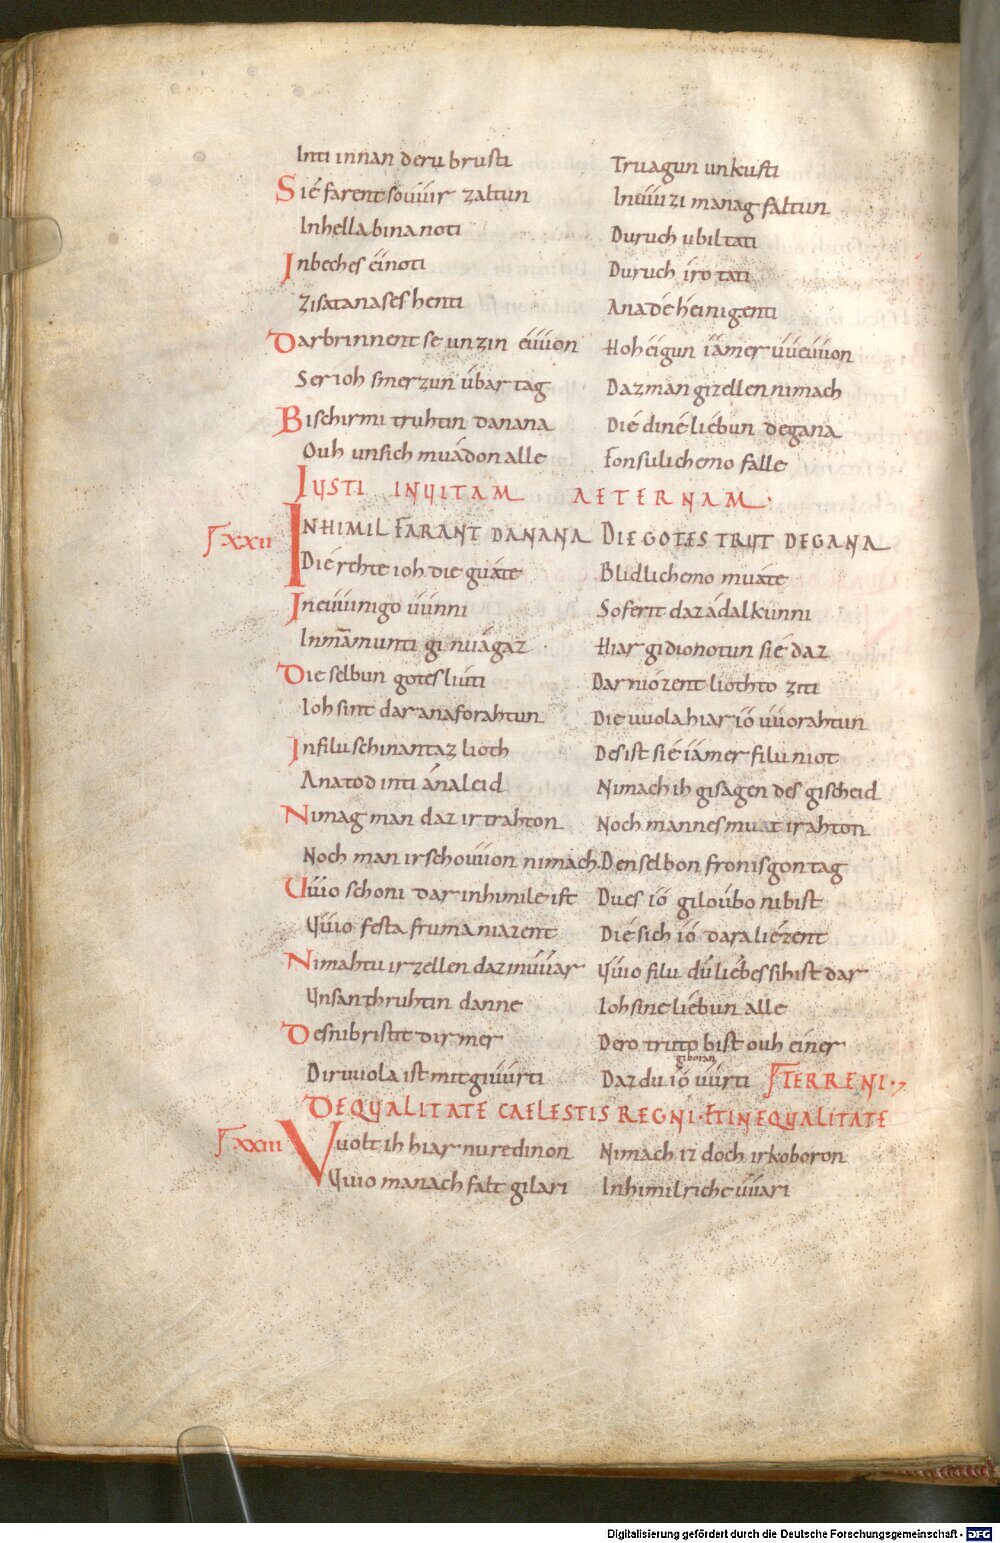 Inti innan deru brusti Truagun unkusti
Sie farent so uuir zaltun In uuizi manag faltun
In hella bina noti Duruch ubil tati
In beches einoti Duruch iro tati
Zi satanases henti Ana dehein igenti
Dar brinnent se unz in euuon Hoh eigun iamer uueuuon
Ser ioh smerzun ubar tag Daz man gizellen nimach
Bischirmi truhtin danana Dié diné liébun degana
Ouh unsich muádon alle Fon sulichemo falle
IUSTI IN UITAM AETERNAM.
XXII IN HIMIL FARANT DANANA DIE GOTES TRUT DEGANA
Die rehte ioh die guate Blidlichemo muate
In euuinigo uunni So ferit daz ádalkunni
In mammunti ginuágaz Hiar gidionotun sié daz
Die selbun gotes liuti Dar niózent liohto ziti
Ioh sint dar ana forahtun Die uuola hiar ió uuorahtun
In filu schinantaz lioth Des ist sié iámer filu niot
Ana tod inti ána leid Nimach ih gisagen des gischeid
Nimag man daz irtrahton Noch mannes muat irahton
Noch man irschouuon nimach Den selbon fronisgon tag
Uuio schoni dar in himile ist Du es ió giloúbo nibist
Uuio festa fruma niazent Dié sich ió dara liézent
Nimahtu irzellen daz in uuar Uuio filu dú liébes sihist dar
Unsan thruhtin danne Ioh sine liébun alle
Des nibristit dir mer Dero trutto bist ouh einer
giboran
Dir uuola ist mit giuurti Daz du ió uurti TERRENI.
DE QUALITATE CAELESTIS REGNI. ET INEQUALITATE
XXIII Uuolt ih hiar nu redinon Nimach iz doch irkoboron
Uuio manach falt gilari In himilriche uuari
Digitalisierung gefördert durch die Deutsche Forschungsgemeinschaft - DFG